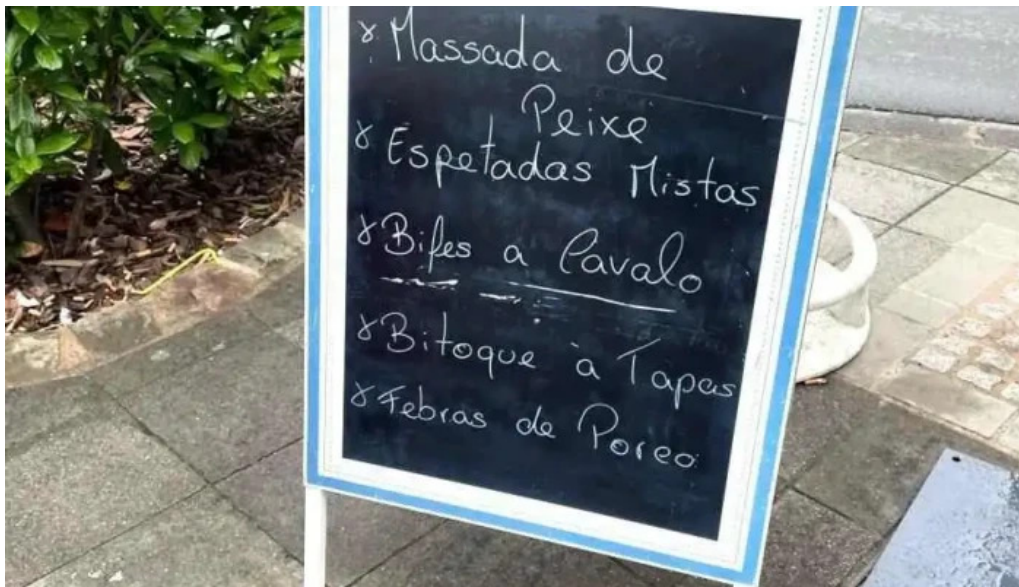 Massada de
Peixe
Espetadas Mistas
Bifes a Cavalo
Bitoque à Tapas
Febras de Porco